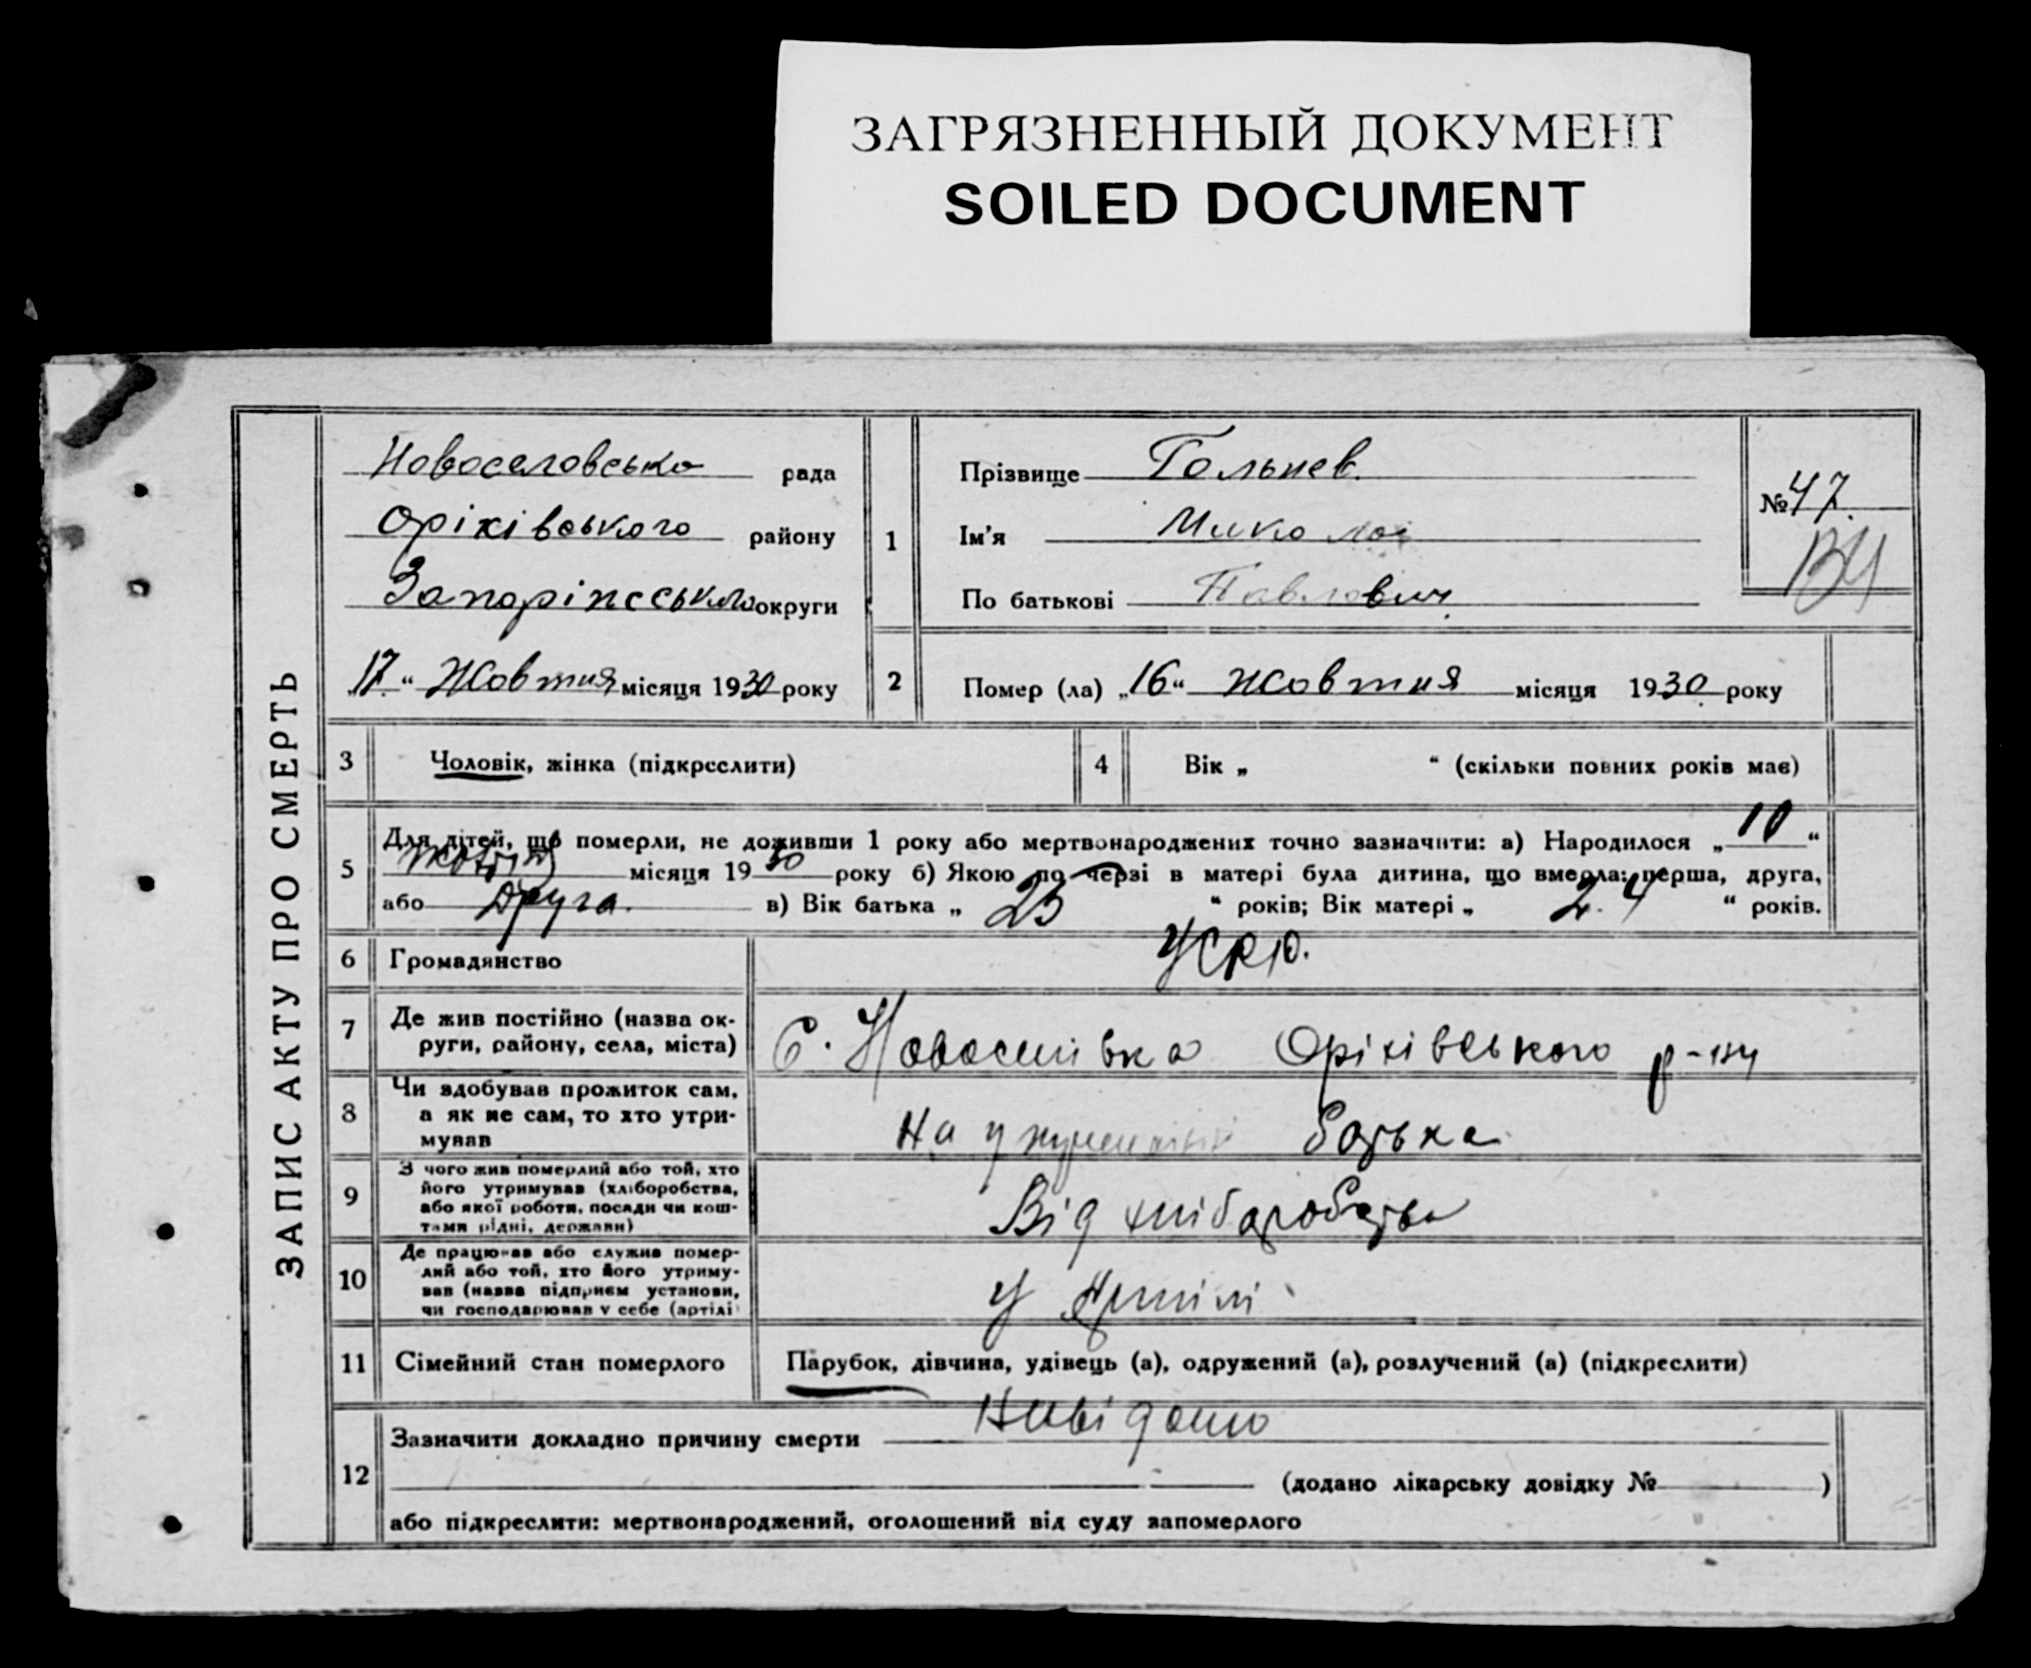 ЗАГРЯЗНЕННЫЙ ДОКУМЕНТ
SOILED DOCUMENT
ЗАПИС АКТУ ПРО СМЕРТЬ
Новоселовсько рада
Оріхівського району
округи
„17.“ Жовтня місяця 1930 року
1
Прізвище
Ім'я Микола
По батькові Павлович
№ 47.
2
Помер (ла) „16“ жовтня місяця 1930 року
3
Чоловік, жінка (підкреслити)
4
Вік „ “ (скільки повних років має)
5
Для дітей, що померли, не доживши 1 року або мертвонароджених точно зазначити: а) Народилося „10“
жовтня місяця 1930 року б) Якою по черзі в матері була дитина, що вмерла: перша, друга,
або Друга. в) Вік батька „ 25 “ років; Вік матері „ 24 “ років.
6
Громадянство
7
Де жив постійно (назва ок-
руги, району, села, міста)
С. Новоселівка Оріхівського р-ну
8
Чи здобував прожиток сам,
а як не сам, то хто утри-
мував
На батька
9
З чого жив померлий або той, хто
його утримував (хліборобства,
або якої роботи, посади чи кош-
тами рідні, держави)
Від хліборобства
10
Де працював або служив помер-
лий або той, хто його утриму-
вав (назва підприєм установи,
чи господарював у себе (артілі
У Артілі
11
Сімейний стан померлого
Парубок, дівчина, удівець (а), одружений (а), розлучений (а) (підкреслити)
12
Зазначити докладно причину смерти Невідомо
(додано лікарську довідку № )
або підкреслити: мертвонароджений, оголошений від суду запомерлого